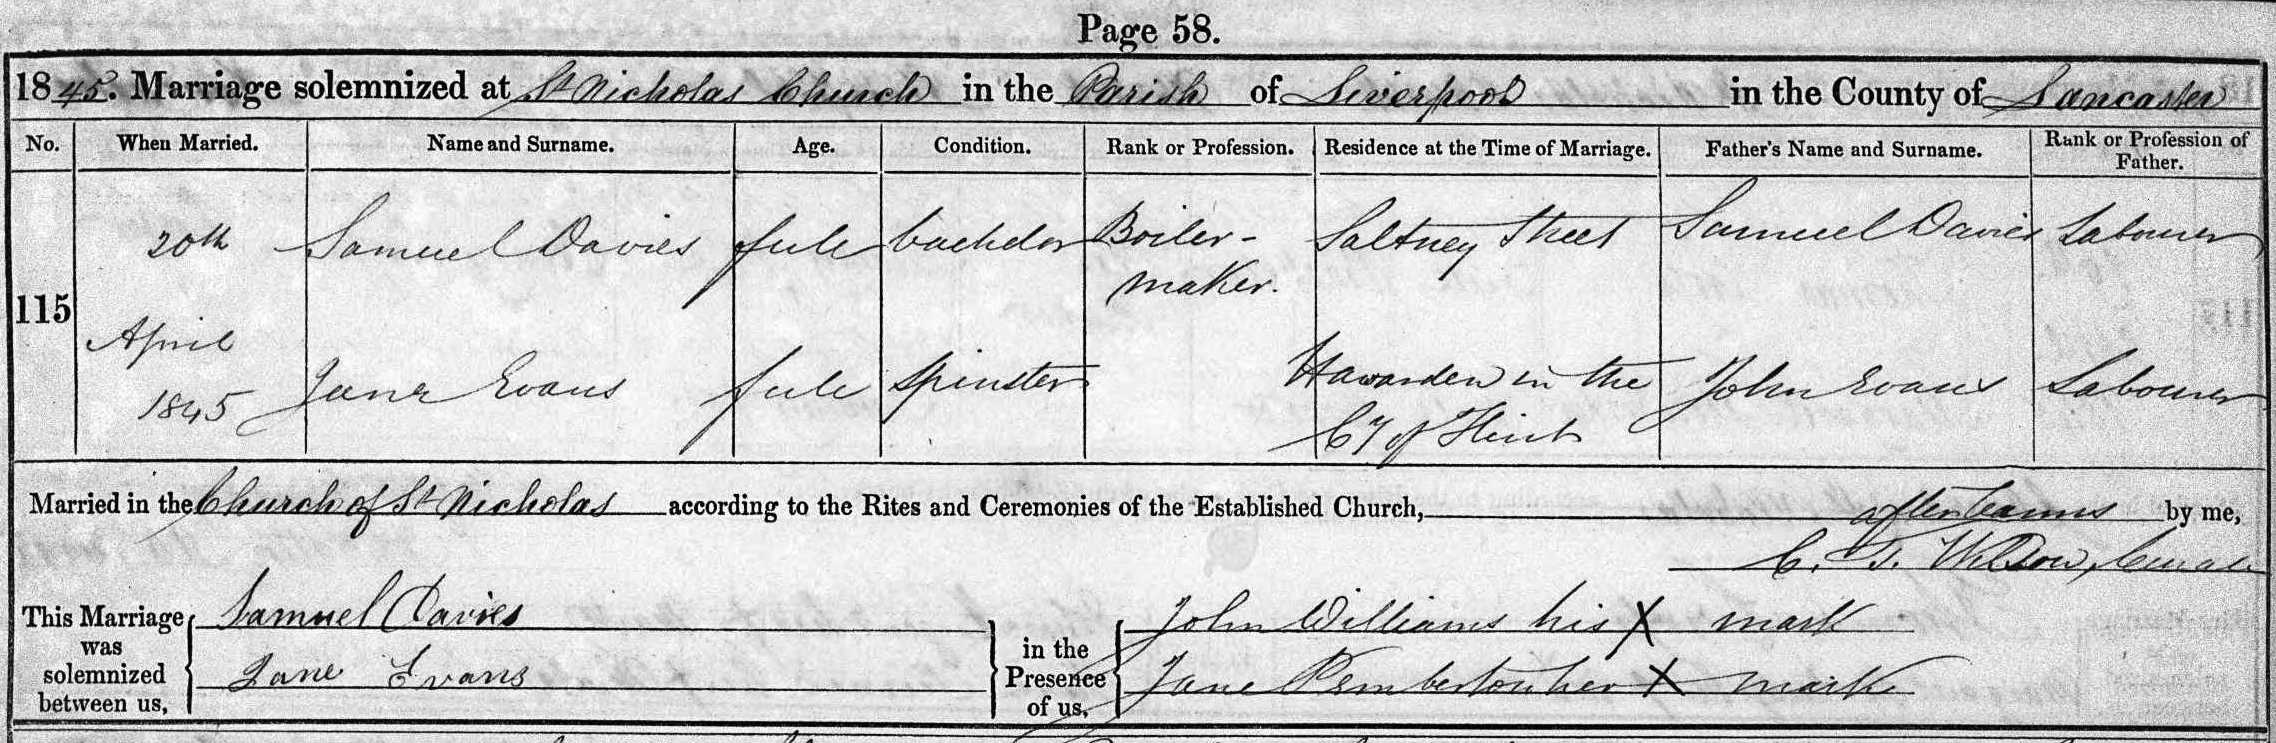 Page 58.
1845. Marriage solemnized at St Nicholas Church in the Parish of Liverpool in the County of Lancaster
No. When Married. Name and Surname. Age. Condition. Rank or Profession. Residence at the Time of Marriage. Father's Name and Surname. Rank or Profession of Father.
115 20th April 1845 Samuel Davies full bachelor Boiler-maker. Saltney Street Samuel Davies Labourer
Jane Evans full spinster Hawarden in the Cy of Flint John Evans Labourer
Married in the Church of St Nicholas according to the Rites and Ceremonies of the Established Church, after banns by me,
C. T. Wilson, Curate
This Marriage was solemnized between us, Samuel Davies Jane Evans in the Presence of us, John Williams his X mark Jane Pemberton her X mark